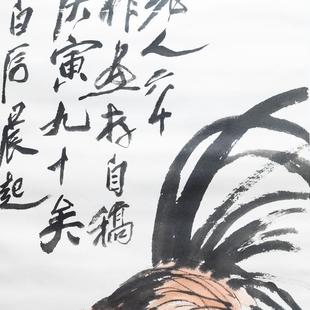 老人六十
非画存自稿
庚寅九十矣
白石晨起